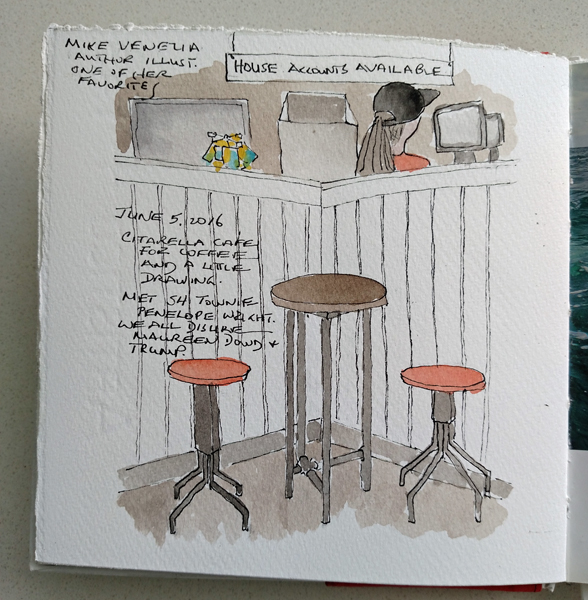 MIKE VENEZIA
AUTHOR ILLUST.
ONE OF HER
FAVORITES
HOUSE ACCOUNTS AVAILABLE
JUNE 5, 2016
CITARELLA CAFE
FOR COFFEE
AND A LITTLE
DRAWING.
MET SH TOWNIE
PENELOPE WRIGHT.
WE ALL DISLIKE
MAUREEN DOWD &
TRUMP